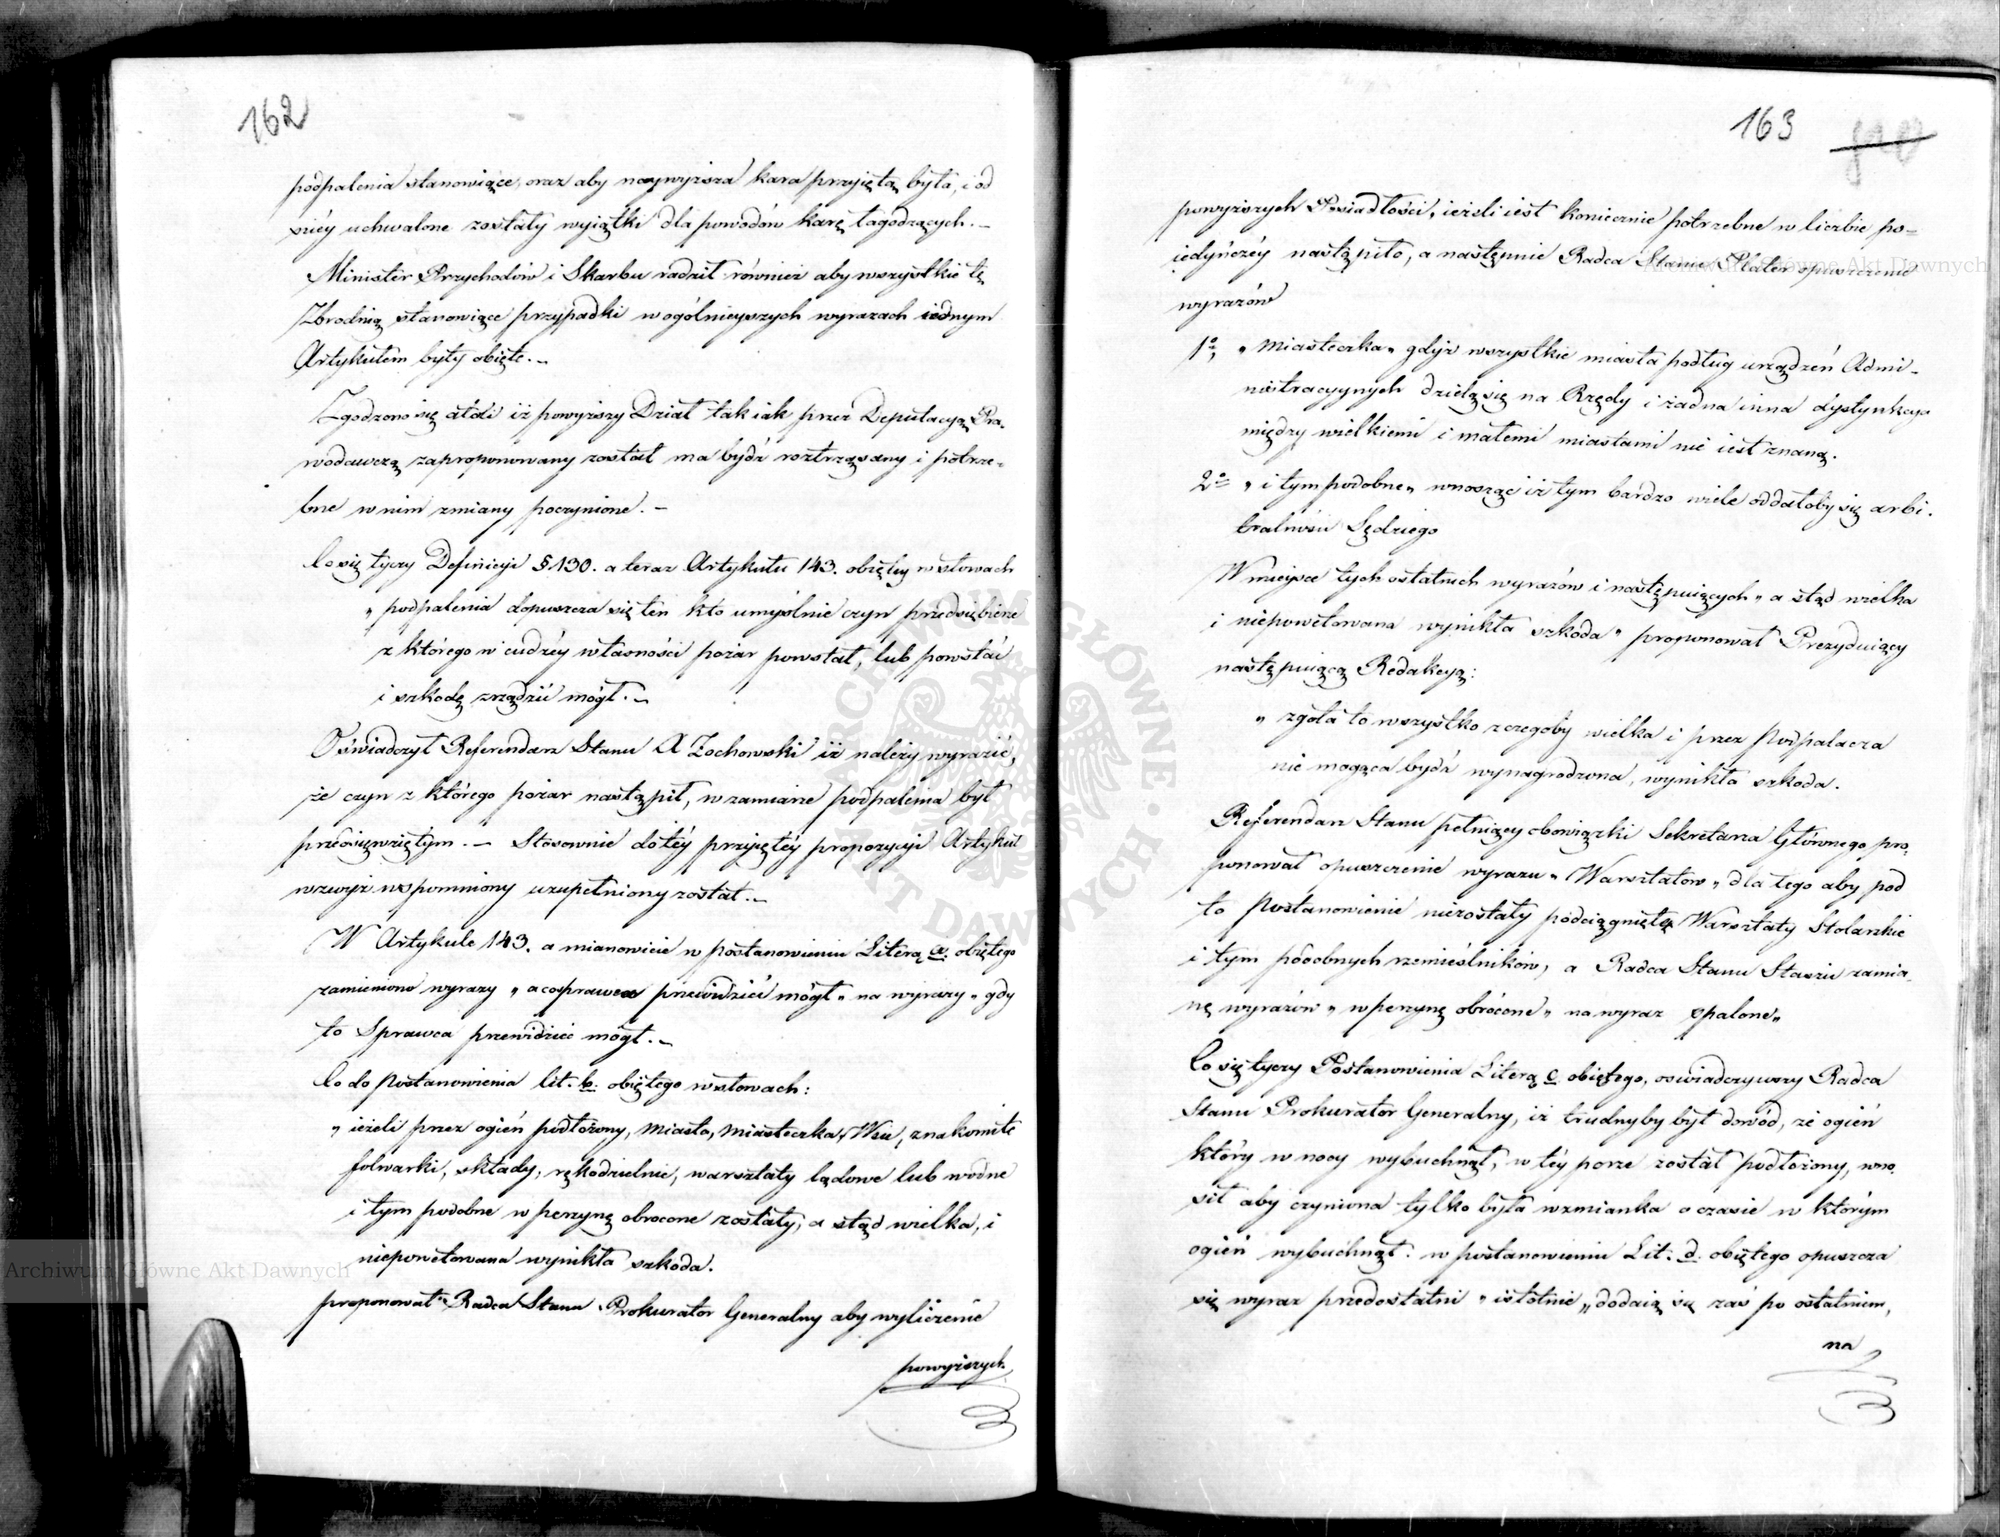 162
podpalenia stanowiące, oraz aby naywyższa kara przyiętą była, i od
niéy uchwalone zostały wyiątki dla powodów karę łagodzących. –
Minister Przychodów i Skarbu radził również aby wszystkie tę
Zbrodnią stanowiące przypadki w ogólnieyszych wyrazach iednym
Artykułem były obięte. –
Zgodzono się atoli iż powyższy Dział tak iak przez Deputacyą Pra-
wodawczą zaproponowany został ma bydź roztrząsany i potrze-
bne w nim zmiany poczynione. –
Co się tyczy Definicyi § 130. a teraz Artykułu 143. obiętey w słowach
„ podpalenia dopuszcza się ten kto umyślnie czyn przedsiębierze
z którego w cudzéy własności pożar powstał, lub powstać
i szkodę zrządzić mógł. –
Oświadczył Referendarz Stanu A Żochowski iż należy wyrazić,
że czyn z którego pożar nastąpił, w zamiarze podpalenia był
przedsięwziętym. – Stosownie do téy przyiętéy propozycyi Artykuł
wzwyż wspomniony uzupełniony został. –
W Artykule 143. a mianowicie w postanowieniu Literą a. obiętego
zamieniono wyrazy „ a co sprawca przewidzieć mógł „ na wyrazy „ gdy
to Sprawca przewidzieć mógł. –
Co do postanowienia lit. b. obiętego w słowach:
„ ieżeli przez ogień podłożony, Miasto, Miasteczka, Wsie, znakomite
folwarki, składy, rękodzielnie, warsztaty lądowe lub wodne
i tym podobne w perzynę obrocone zostały, a stąd wielka, i
niepowetowana wynikła szkoda.
proponował Radca Stanu Prokurator Generalny aby wyliczenie
powyższych
163
powyższych Posiadłości, ieżeli iest koniecznie potrzebne w liczbie po-
iedyńczéy nastąpiło, a następnie Radca Stanu Plater opuszczenie
wyrazów
1o, „ Miasteczka „ gdyż wszystkie miasta podług urządzeń Admi-
nistracyynych dzielą się na Rzędy i żadna inna dystynkcya
między wielkiemi i małemi miastami nie iest znaną.
2o „ i tym podobne „ wnosząc iż tym bardzo wiele oddałoby się arbi-
tralności Sędziego
W mieysce tych ostatnich wyrazów i następuiących „ a stąd wielka
i niepowetowana wynikła szkoda „ proponował Prezyduiący
następuiącą Redakcyą:
„ zgoła to wszystko z czegoby wielka i przez Podpalacza
nie mogąca bydź wynagrodzona, wynikła szkoda.
Referendarz Stanu pełniący obowiązki Sekretarza Głównego pro-
ponował opuszczenie wyrazu „ Warsztatów „ dla tego aby pod
to Postanowienie niezostały podciągnięte Warsztaty Stolarskie
i tym podobnych rzemieślników, a Radca Stanu Staszic zamia-
nę wyrazów „ w perzynę obrócone „ na wyraz spalone „
Co się tyczy Postanowienia Literą c. obiętego, oświadczywszy Radca
Stanu Prokurator Generalny, iż trudnyby był dowód, że ogień
który w nocy wybuchnął, w téy porze został podłożony, wno-
sił aby czyniona tylko była wzmianka o czasie w którym
ogień wybuchnął. w postanowieniu Lit. d. obiętego opuszcza
się wyraz przedostatni „ istotnie „ dodaią się zaś po ostatniem,
na
Archiwum Główne Akt Dawnych
Archiwum Główne Akt Dawnych
ARCHIWUM GŁÓWNE AKT DAWNYCH